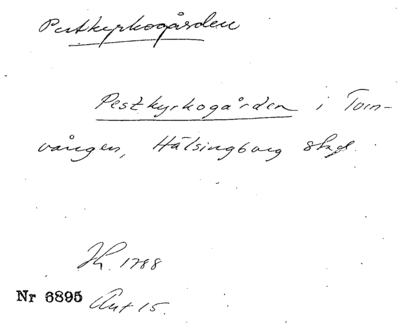 Pestkyrkogården
Pestkyrkogården i Torn-
vången, Hälsingborg stad.
Kh. 1788
Nr 6895 Ant 15.